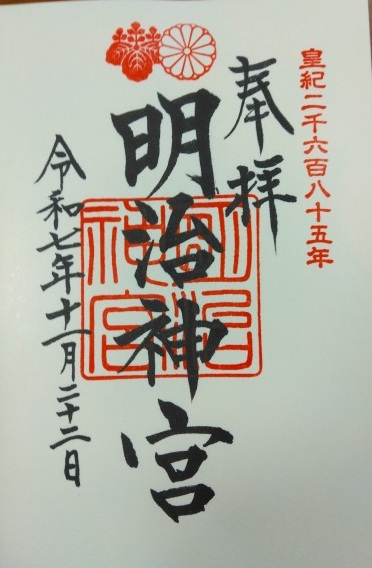 皇紀二千六百八十五年
奉拝
明治神宮
明治神宮
令和七年十一月二十二日